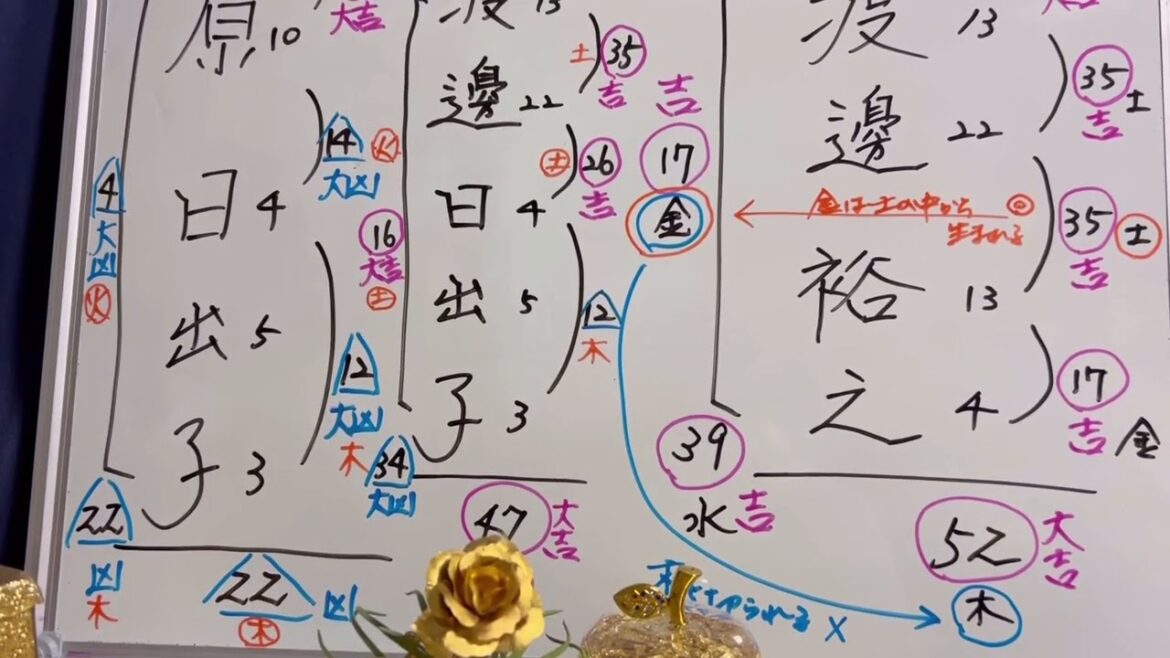 原 10
大吉
日 4
出 5
子 3
14 火
大凶
12
大凶
木
4
大凶
火
22
凶
木
22 凶
木
16
大吉
土
34
大凶
13
邊 22
日 4
出 5
子 3
土 35
吉
土 26
吉
12
木
47 大吉
吉
17
金
13
邊 22
裕 13
之 4
35 土
吉
35 土
吉
17
吉 金
金は土の中から
生まれる
39
水 吉
52 大吉
木
られる X